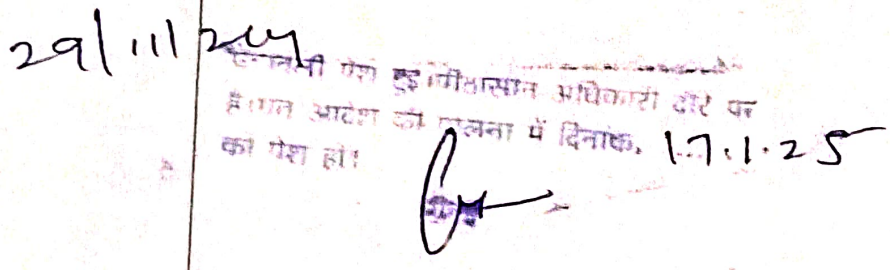 29/11/24
पत्रावली पेश हुई। पीठासीन अधिकारी दौरे पर
है। गत आदेश की पालना में दिनांक. 17.1.25
को पेश हो।